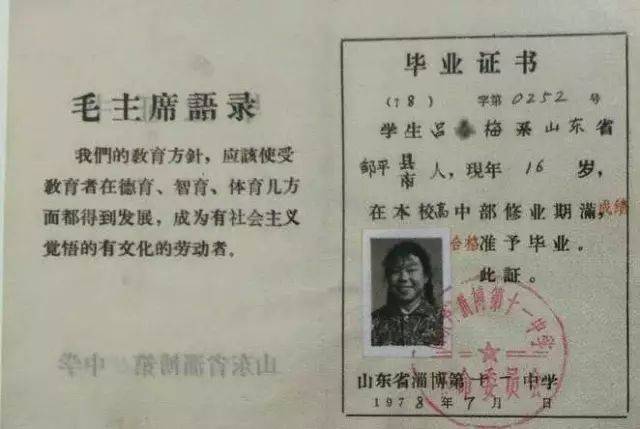 毛主席語录
我們的教育方針，应該使受
教育者在德育、智育、体育几方
面都得到发展，成为有社会主义
覚悟的有文化的劳动者。
山东省淄博第 中学
毕业证书
(78) 字第0252号
学生吕 梅系山东省
邹平县市人，現年16岁，
在本校高中部修业期滿，成绩
合格准予毕业。
此証。
博第十一中学
革命委员会
山东省淄博第十一中学
1978年7月 日